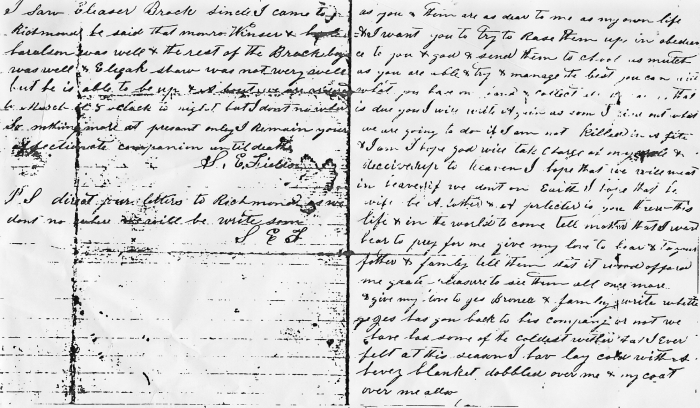 I Saw Eleaser Brock since I came to
Richmond he said that monro Kinser &
was well & the rest of the Brock boys
was well & Eligah shaw was not very well
but he is able to be up & a
march at 6 oclock to night but I dont no
So nothing more at present only I Remain your
affectionate companion until death
P S direct your letters to Richmond as we
dont no where we will be write soon
S E F
as you & them are as dear to me as my own life
& I want you to try to Rase them up in obedian
ce to you & god & send them to chool as mutch
as you are able & try & manage to best you can with
what you have on hand & collect that
is due you I will write again as soon I find out what
we are going to do if I am not Killed in a fite
& I am I hope god will take Charge of my &
Receive up to heaven I hope that we will meat
in heaven if we dont on Earth I hope that he
will be A father & a protecter to you threw this
life & in the world to come tell mother that I want
her to pray for me give my love to her & to your
father & family tell them that it wood afford
me grate pleasure to see them all once more
& give my love to & family & write whether
has gon back to his company or not we
have had some of the coldest wether that I Ever
felt at this season I hav lay cold with a
hevey blanket dobbled over me & my coat
over me allso